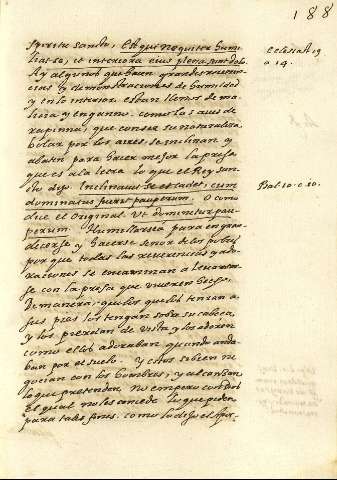 188
spiritu sancto, Est qui nequiter humi
liat se, et interiora eius plena sunt dolo
Ay algunos que hacen grandes reveren
cias y demonstraciones de humildad
y en lo interior estan llenos de ma
licia y engaño. como las aves de
rapiña, que con ser su naturaleza
bolar por los aires se inclinan y
abaten para hacer mejor la presa
que es a la letra lo que el Rey san
to dijo. Inclinavit se et cadet, cum
dominatus fuerit pauperum. O como
dice el original. Ut dominetur pau
perum. Humillarse para engran
decerse y hacerse señor de los pobres
porque todas las reverencias y ado
raciones se encaminan a levantar
se con la presa que vieren
De manera, que los que los tenian a
sus pies los tengan sobre su cabeça,
y los pierdan de vista y los adoren
como ellos adoraban quando anda
ban por el suelo. Y estos si bien ne
gocian con los hombres, y alcanzan
lo que pretenden no empero con Dios
El qual no les concede lo que piden
para tales fines. como lo dijo el Apos-
Eclesiasti 19
a 14.
Psal 10. c. 10.